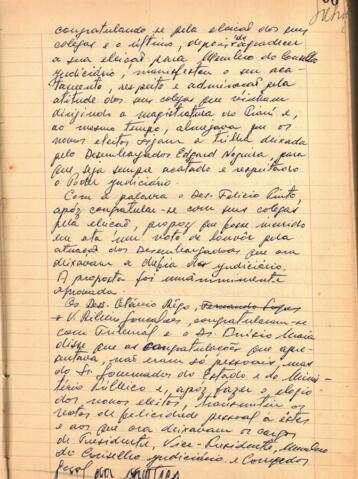 congratulando se pela eleição dos seus
colegas e o último, depois de agradecer
a sua eleição para Membro do Conselho
Judiciário, manifestou o seu aca-
tamento, respeito e admiração pela
atitude dos seus colegas que vinham
dirigindo a magistratura do Piauí e,
ao mesmo tempo, almejava que os
novos eleitos sigam a trilha deixada
pelo Desembargador Edgard Nogueira, para
que seja sempre acatado e respeitado
o Poder Judiciário.
Com a palavra o Des. Felicio Pinto,
após congratular-se com seus colegas
pela eleição, propoz que fosse inserido
em ata um voto de louvor pela
atuação dos Desembargadores que ora
deixavam a chefia do Judiciário.
A proposta foi unanimimente
aprovada.
Os Des. Otávio Rêgo, Fernando Lopes
e V. Ribeiro Gonçalves, congratularam-se
com Tribunal e o Dr. Darcio Maia
disse que as congratulações que apre-
sentava, não eram só pessoais, mas
do Sr. Governador do Estado e do Minis-
tério Público e, após fazer o elogio
dos novos eleitos, transmitiu os
votos de felicidade pessoal a êstes
e aos que ora deixavam os cargos
de Presidente, Vice-Presidente, Membro
do Conselho Judiciário e Corregedor
Geral